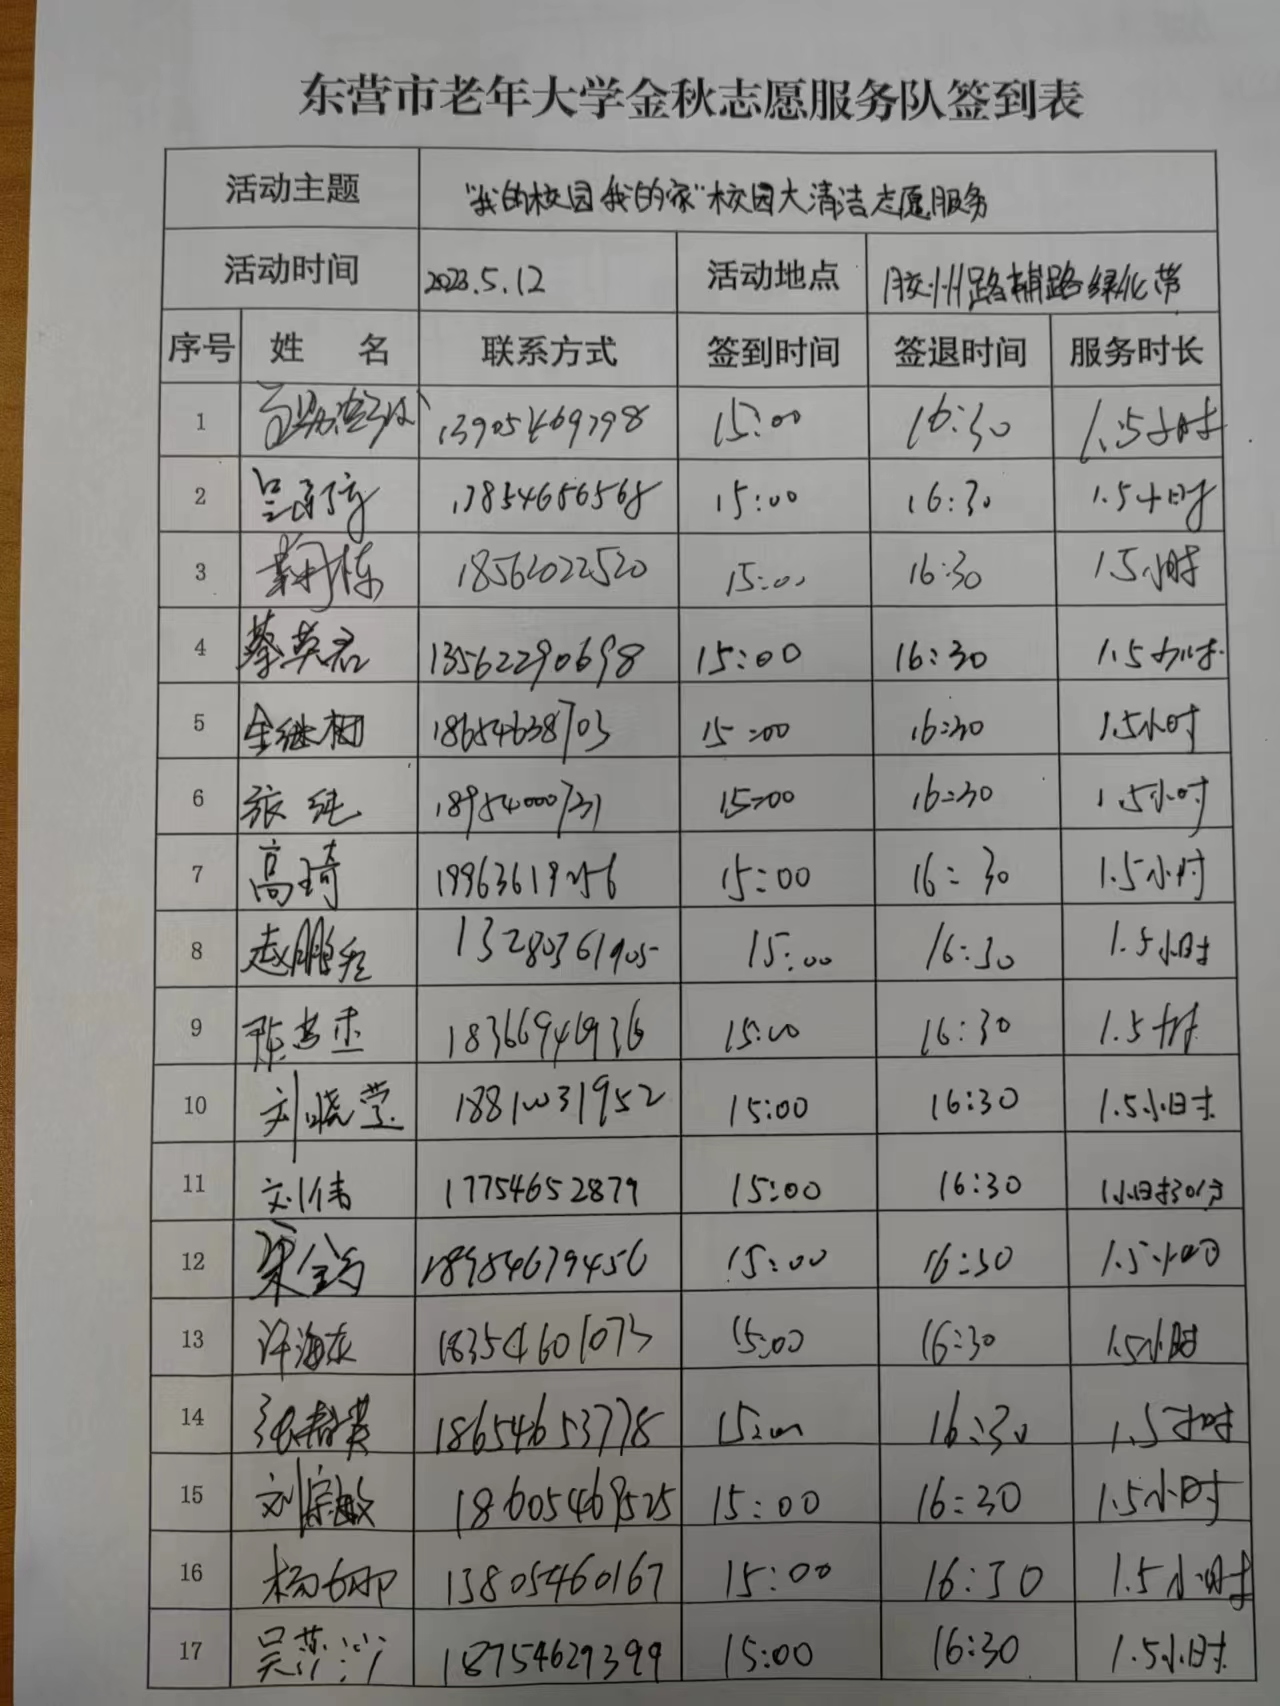 东营市老年大学金秋志愿服务队签到表
活动主题 "我的校园我的家"校园大清洁志愿服务
活动时间 2023.5.12 活动地点 胶州路辅路绿化带
序号 姓 名 联系方式 签到时间 签退时间 服务时长
1 15:00 16:30 1.5小时
2 15:00 16:30 1.5小时
3 18562022520 15:00 16:30 1.5小时
4 蔡英君 13562290698 15:00 16:30 1.5小时
5 18654638703 15:00 16:30 1.5小时
6 张纯 18954000731 15:00 16:30 1.5小时
7 高琦 15:00 16:30 1.5小时
8 13280361905 15:00 16:30 1.5小时
9 18366946936 15:00 16:30 1.5小时
10 刘晓莹 18810031952 15:00 16:30 1.5小时
11 刘伟 17754652879 15:00 16:30 1小时30分
12 18954679456 15:00 16:30 1.5小时
13 18354601073 15:00 16:30 1.5小时
14 18654653778 15:00 16:30 1.5小时
15 刘宗敏 18605469525 15:00 16:30 1.5小时
16 杨女娜 13805460167 15:00 16:30 1.5小时
17 吴莎沙 18754629399 15:00 16:30 1.5小时